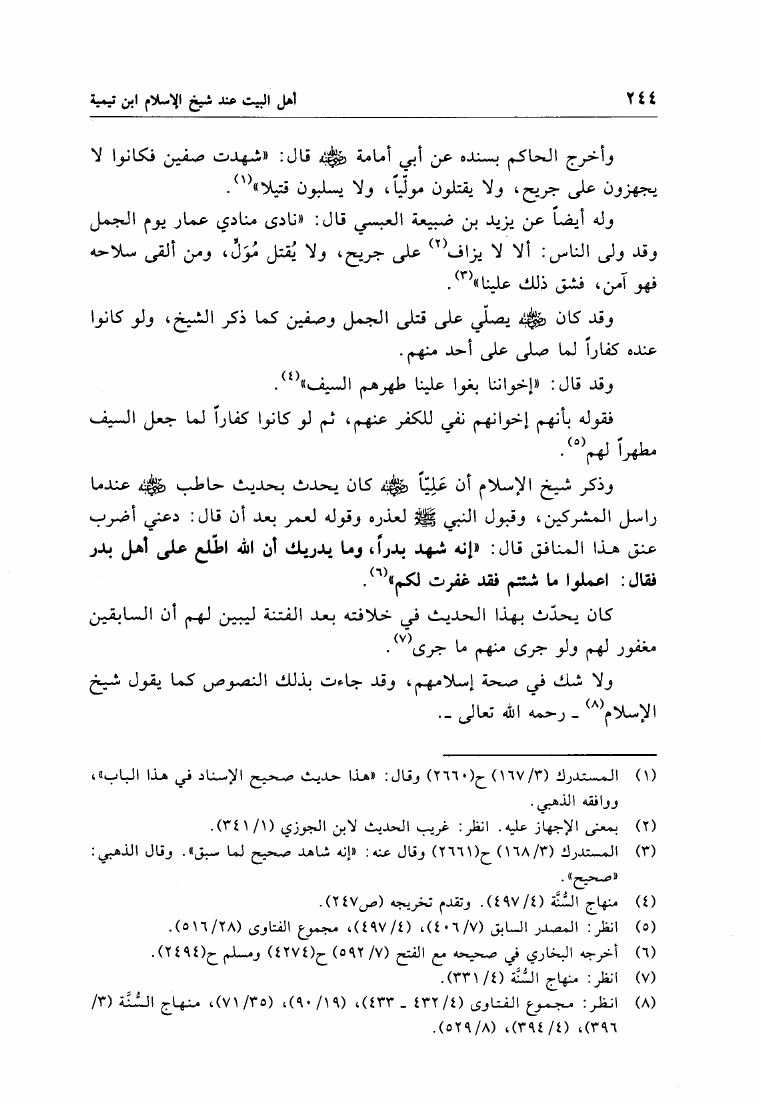 ٢٤٤
أهل البيت عند شيخ الإسلام ابن تيمية
وأخرج الحاكم بسنده عن أبي أمامة ﵁ قال: «شهدت صفين فكانوا لا
يجهزون على جريح، ولا يقتلون مولّياً، ولا يسلبون قتيلا»(١).
وله أيضاً عن يزيد بن ضبيعة العبسي قال: «نادى منادي عمار يوم الجمل
وقد ولى الناس: ألا لا يزاف(٢) على جريح، ولا يُقتل مُوَلٍّ، ومن ألقى سلاحه
فهو آمن، فشق ذلك علينا»(٣).
وقد كان ﵁ يصلّي على قتلى الجمل وصفين كما ذكر الشيخ، ولو كانوا
عنده كفاراً لما صلى على أحد منهم.
وقد قال: «إخواننا بغوا علينا طهرهم السيف»(٤).
فقوله بأنهم إخوانهم نفي للكفر عنهم، ثم لو كانوا كفاراً لما جعل السيف
مطهراً لهم(٥).
وذكر شيخ الإسلام أن عَلِيّاً ﵁ كان يحدث بحديث حاطب ﵁ عندما
راسل المشركين، وقبول النبي ﷺ لعذره وقوله لعمر بعد أن قال: دعني أضرب
عنق هذا المنافق قال: «إنه شهد بدراً، وما يدريك أن الله اطّلع على أهل بدر
فقال: اعملوا ما شئتم فقد غفرت لكم»(٦).
كان يحدّث بهذا الحديث في خلافته بعد الفتنة ليبين لهم أن السابقين
مغفور لهم ولو جرى منهم ما جرى(٧).
ولا شك في صحة إسلامهم، وقد جاءت بذلك النصوص كما يقول شيخ
الإسلام(٨) ـ رحمه الله تعالى ـ.
(١) المستدرك (١٦٧/٣) ح(٢٦٦٠) وقال: «هذا حديث صحيح الإسناد في هذا الباب»،
ووافقه الذهبي.
(٢) بمعنى الإجهاز عليه. انظر: غريب الحديث لابن الجوزي (٣٤١/١).
(٣) المستدرك (١٦٨/٣) ح(٢٦٦١) وقال عنه: «إنه شاهد صحيح لما سبق». وقال الذهبي:
«صحيح».
(٤) منهاج السُّنَّة (٤٩٧/٤). وتقدم تخريجه (ص٢٤٧).
(٥) انظر: المصدر السابق (٤٠٦/٧)، (٤٩٧/٤)، مجموع الفتاوى (٥١٦/٢٨).
(٦) أخرجه البخاري في صحيحه مع الفتح (٥٩٢/٧) ح(٤٢٧٤) ومسلم ح(٢٤٩٤).
(٧) انظر: منهاج السُّنَّة (٣٣١/٤).
(٨) انظر: مجموع الفتاوى (٤٣٢/٤ ـ ٤٣٣)، (٩٠/١٩)، (٧١/٣٥)، منهاج السُّنَّة (٣/
٣٩٦)، (٣٩٤/٤)، (٥٢٩/٨).